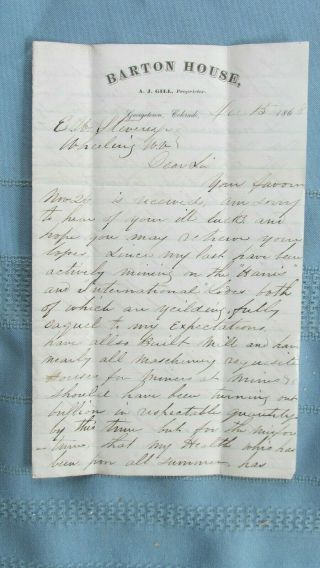 BARTON HOUSE,
A. J. GILL, Proprietor.
Georgetown, Colorado, Dec 15 1868
E. W. Stevens
Wheeling W Va
Dear Sir
Your favour
Nov 24 is received, am sorry
to hear of your ill luck and
hope you may retrieve your
Since my last have been
actively mining on the
and International Lodes both
of which are yeilding fully
eaquel to my Expectations
have allso built Mill and have
nearly all Maschinery requisite
Houses for miners at Mines &
should have been turning out
bullion in respectable quantity
by this time but for the misfor
-tune, that my Health who has
been poor all summer has